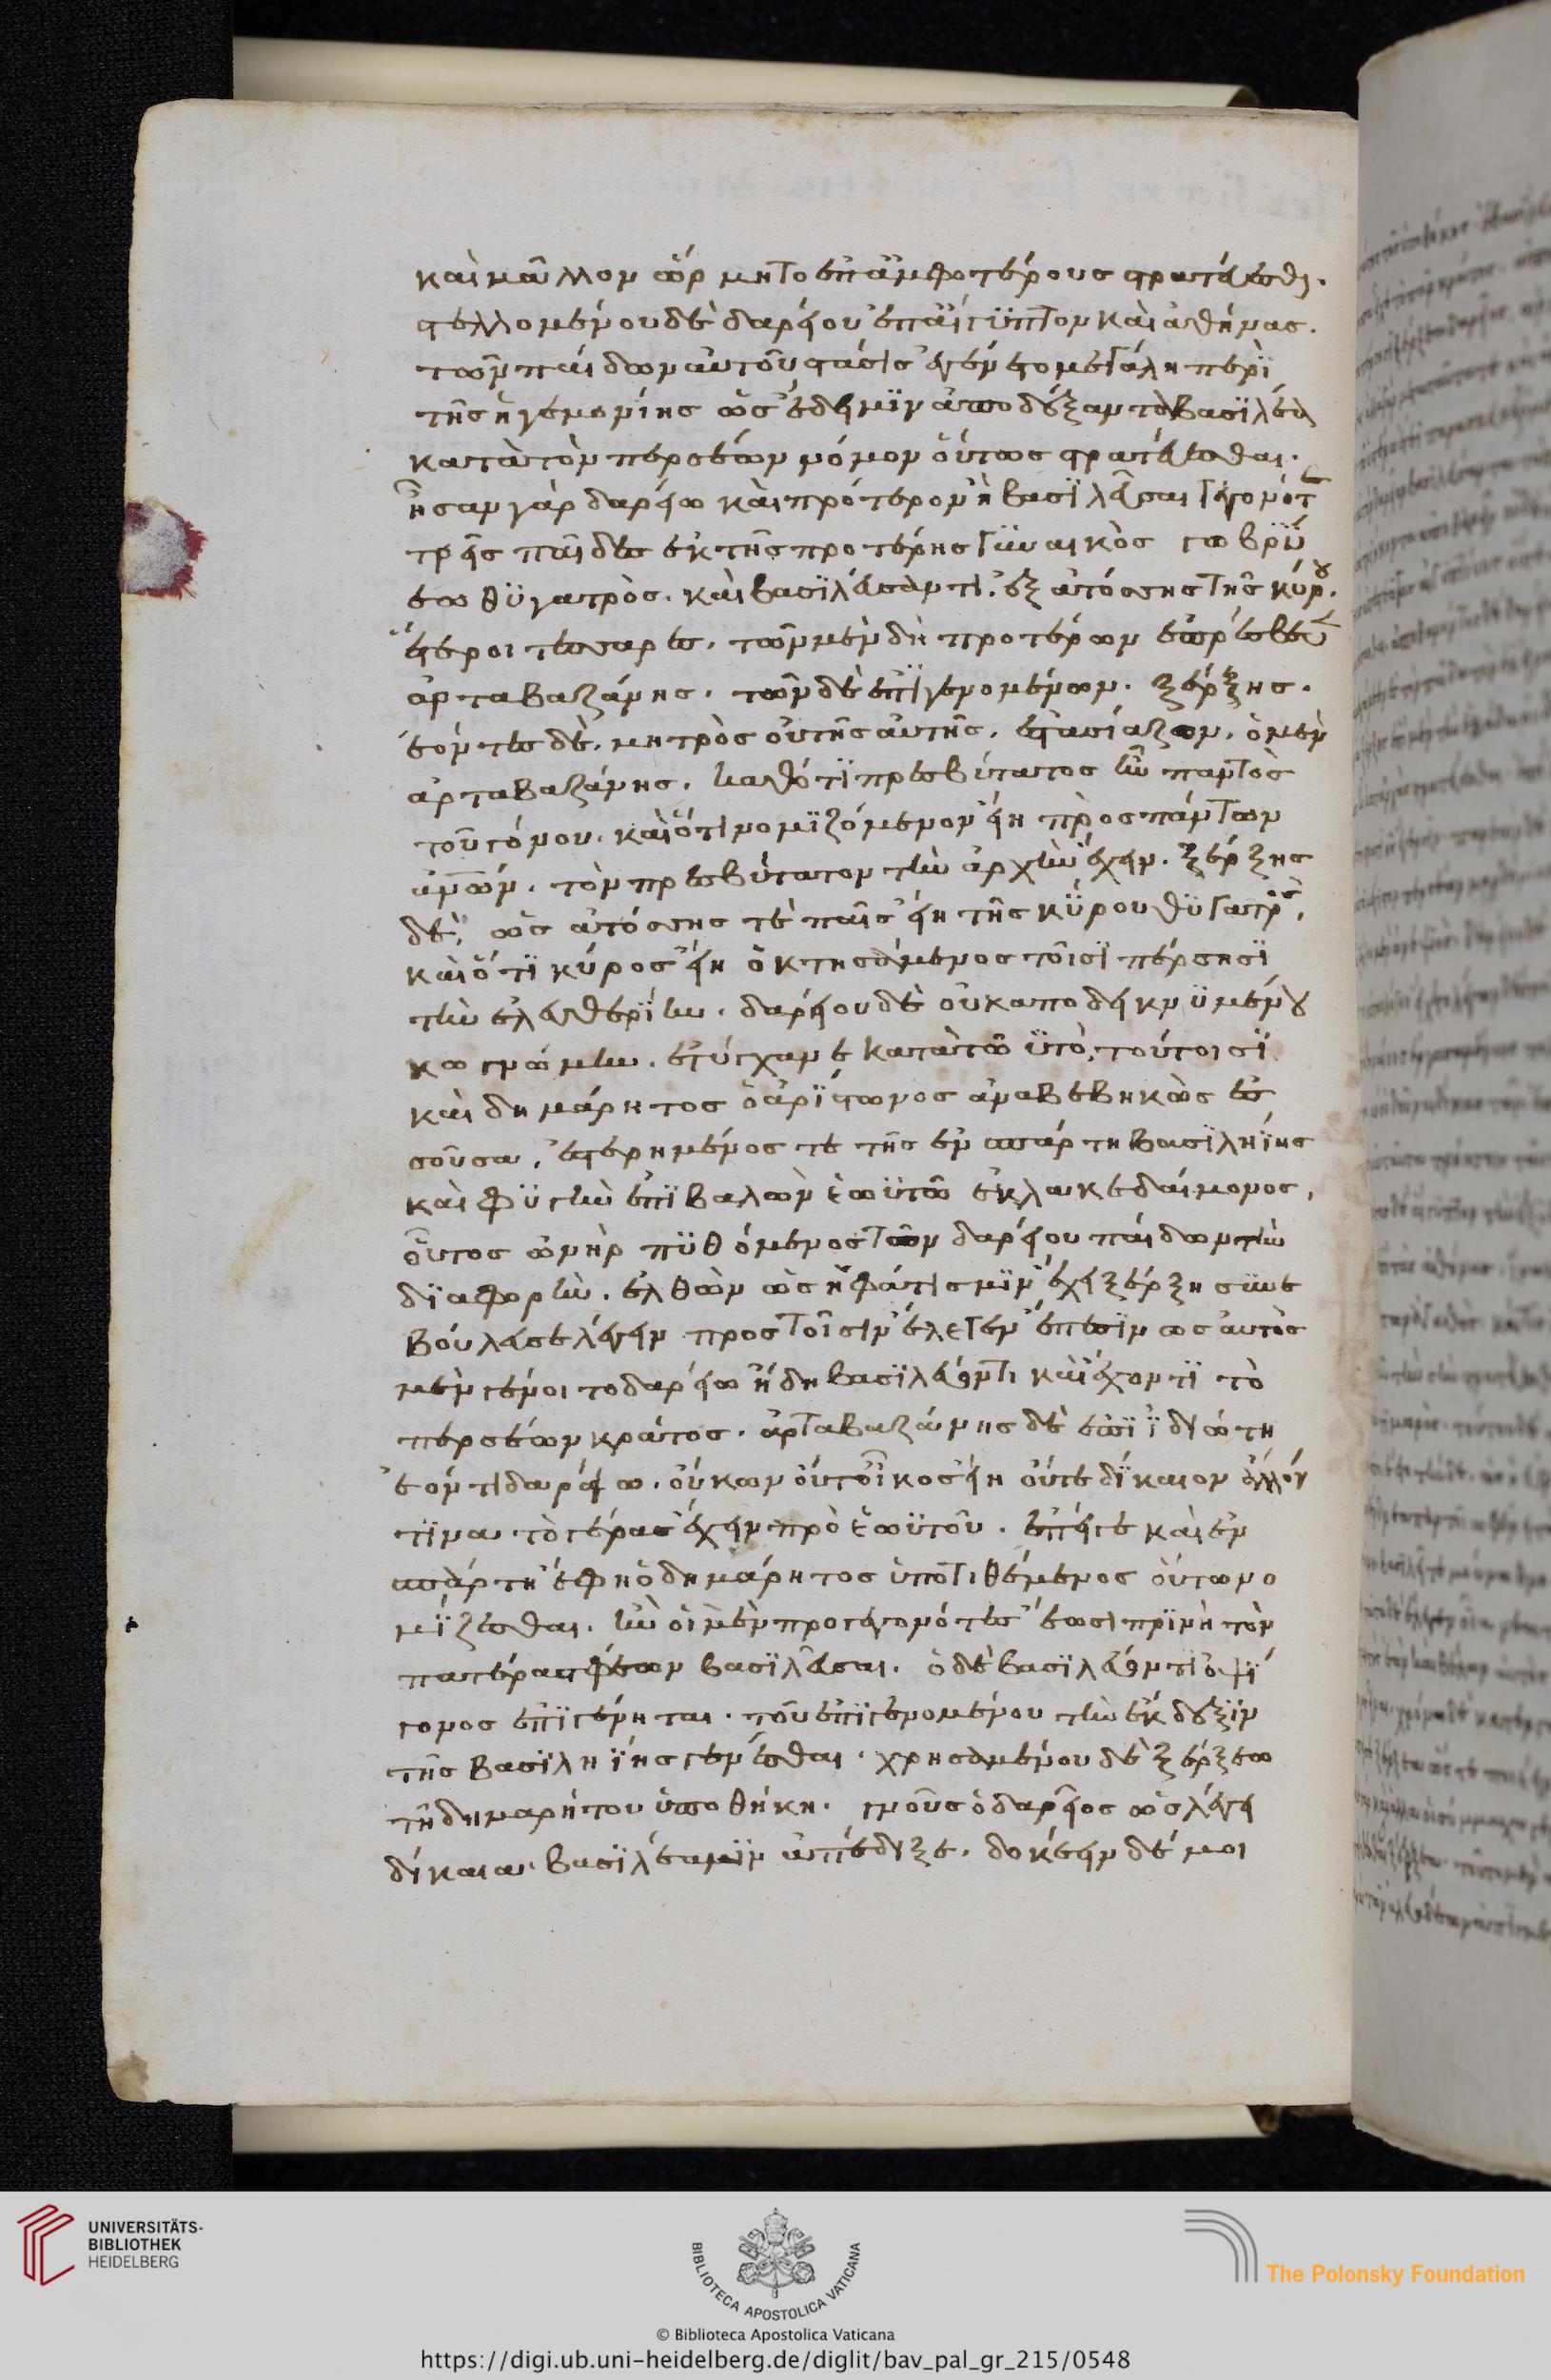 καὶ μᾶλλον ὥρμητο ἐπ' ἀμφοτέρους στρατεύεσθαι.
στελλομένου δὲ δαρείου ἐπ' αἴγυπτον καὶ ἀθήνας.
τῶν παίδων αὐτοῦ στάσις ἐγένετο μεγάλη περὶ
τῆς ἡγεμονίης ὡς ἔδει μιν ἀποδέξαντα βασιλέα
κατὰ τὸν περσέων νόμον οὕτως στρατεύεσθαι.
ἦσαν γὰρ δαρείω καὶ πρότερον ἢ βασιλεῦσαι γεγονότες
τρεῖς παῖδες ἐκ τῆς προτέρης γυναικὸς γωβρύ
εω θυγατρὸς. καὶ βασιλεύσαντι. ἐξ ἀτόσσης τῆς κύρου.
ἕτεροι τέσσαρες. τῶν μὲν δὴ προτέρων ἐπρέσβευε
ἀρταβαζάνης. τῶν δὲ ἐπιγενομένων. ξέρξης.
ἐόντες δὲ. μητρὸς οὐ τῆς αὐτῆς. ἐστασίαζον. ὁ μὲν
ἀρταβαζάνης. κατότι πρεσβύτατος ἦν παντὸς
τοῦ γόνου. καὶ ὅτι νομιζόμενον εἴη πρὸς πάντων
ἀνῶν. τὸν πρεσβύτατον τὴν ἀρχὴν ἔχειν. ξέρξης
δὲ, ὡς ἀτόσσης τὲ παῖς εἴη τῆς κύρου θυγατρὸς,
καὶ ὅτι κύρος εἴη ὁ κτησάμενος τοῖσι πέρσησι
τὴν ἐλευθερίην. δαρείου δὲ οὐκ αποδεικνυμένου
κω γνώμην. ἐτύγχανε κατὰ τωὐτὸ τούτοισι
καὶ δημάρητος ὁ ἀρίστωνος ἀναβεβηκὼς ἐς
σοῦσα, ἐστερημένος τε τῆς ἐν σπάρτη βασιληίης
καὶ φυγὴν ἐπιβαλὼν ἑωυτῶ ἐκ λακεδαίμονος,
οὗτος ὡνὴρ πυθόμενος τῶν δαρείου παίδων τὴν
διαφορὴν. ἐλθὼν ὡς ἡ φάτις μιν ἔχει ξέρξη συνε
βούλευσε λέγειν προς τοῖσιν ἔλεγεν ἔπεσιν ὡς αὐτὸς
μὲν γένοιτο δαρείω ἤδη βασιλεύοντι καὶ ἔχοντι τὸ
περσέων κράτος. ἀρταβαζάνης δὲ ἔτι ἰδιώτη
ἐόντι δαρείω. οὔκων οὔτ' οἰκὸς εἴη οὔτε δίκαιον ἄλλόν
τινα τὸ γέρας ἔχειν πρὸ ἑωυτοῦ. ἐπεί γε καὶ ἐν
σπάρτη ἔφη ὁ δημάρητος ὑποτιθέμενος οὕτω νο
μίζεσθαι. ἢν οἱ μὲν προγεγονότες ἔωσι πρὶν ἢ τὸν
πατέρα σφέων βασιλεῦσαι. ὁ δὲ βασιλεύοντι ὀψί
γονος ἐπιγένηται. τοῦ ἐπιγενομένου τὴν ἔκδεξιν
τῆς βασιληίης γενέσθαι. χρησαμένου δὲ ξέρξεω
τῆ δημαρήτου ὑποθήκη. γνοὺς ὁ δαρεῖος ὡς λέγει
δίκαια. βασιλέα μιν ἀπέδεξε. δοκέειν δέ μοι
UNIVERSITÄTS-
BIBLIOTHEK
HEIDELBERG
BIBLIOTECA APOSTOLICA VATICANA
The Polonsky Foundation
© Biblioteca Apostolica Vaticana
https://digi.ub.uni-heidelberg.de/diglit/bav_pal_gr_215/0548